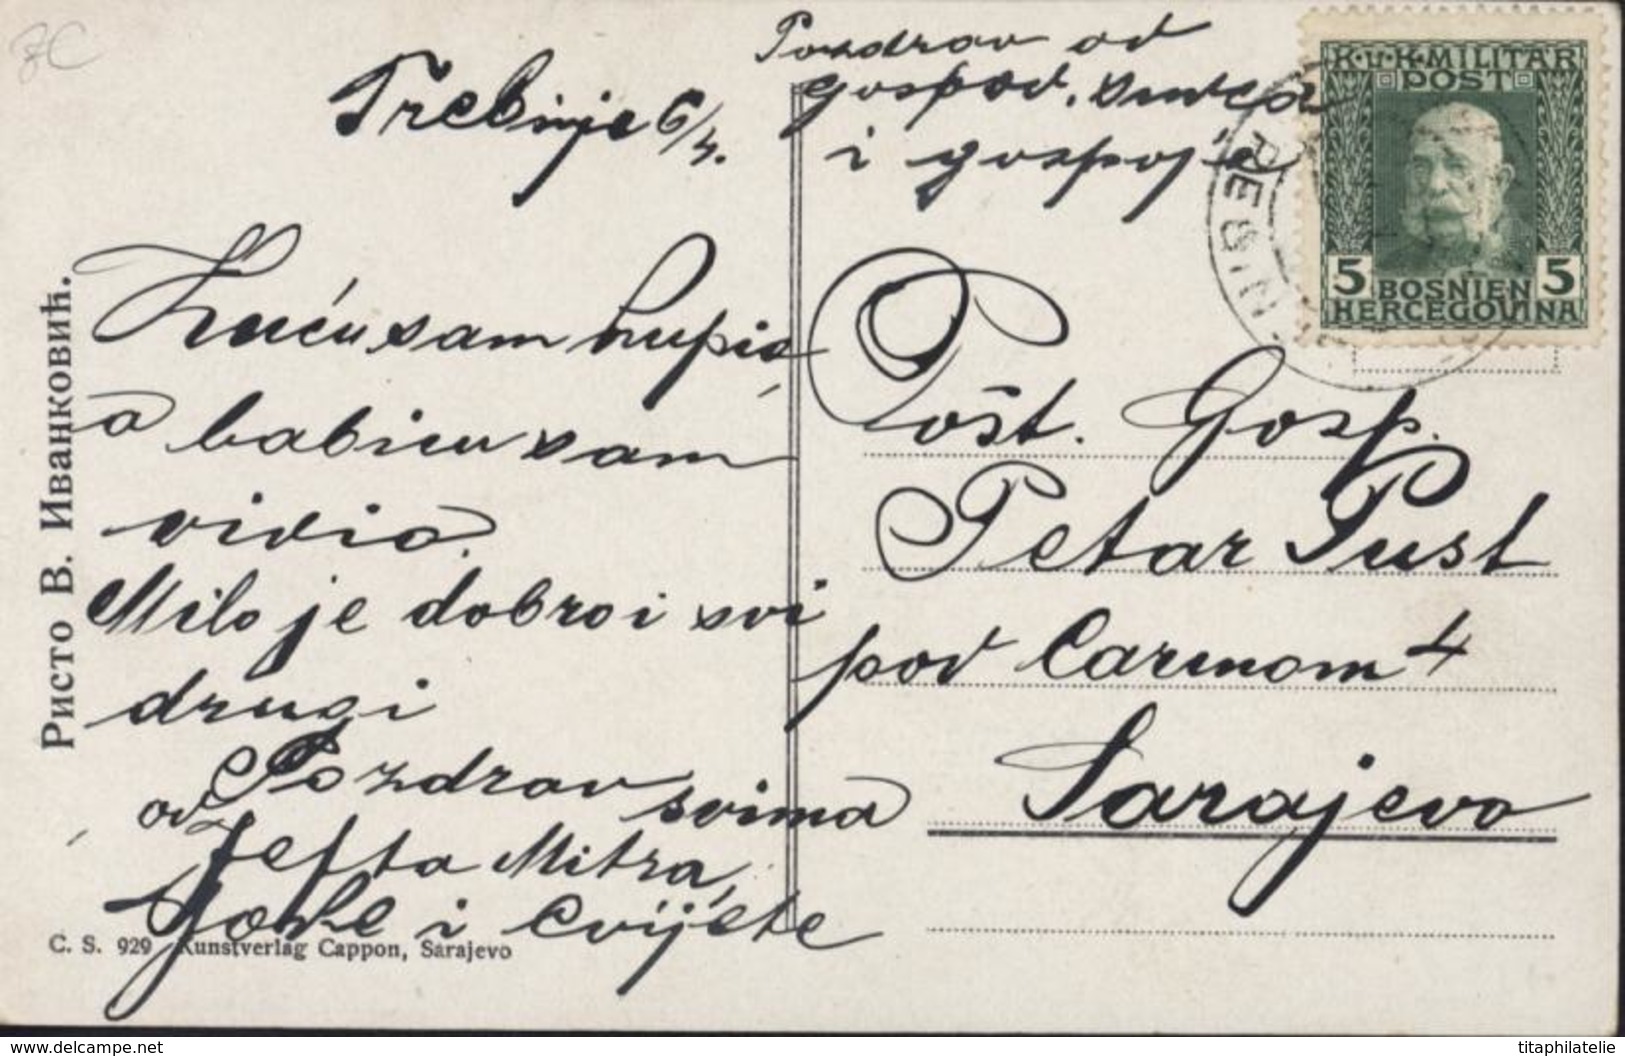 Pozdrav od
gospod.
i gospoje
Trebinje 6/4.
K.u.K. MILITÄR
POST
5 BOSNIEN 5
HERCEGOVINA
TREBINJE
Kuću sam kupio
a babicu sam
vidio.
Milo je dobro i svi
drugi
Pozdrav svima
od Jefta Mitra,
Jove i Cvijete
Pošt. Gosp.
Petar Pust
pod Carinom 4
Sarajevo
Ристо В. Иванковић.
C. S. 929 Kunstverlag Cappon, Sarajevo
www.delcampe.net
titaphilatelie